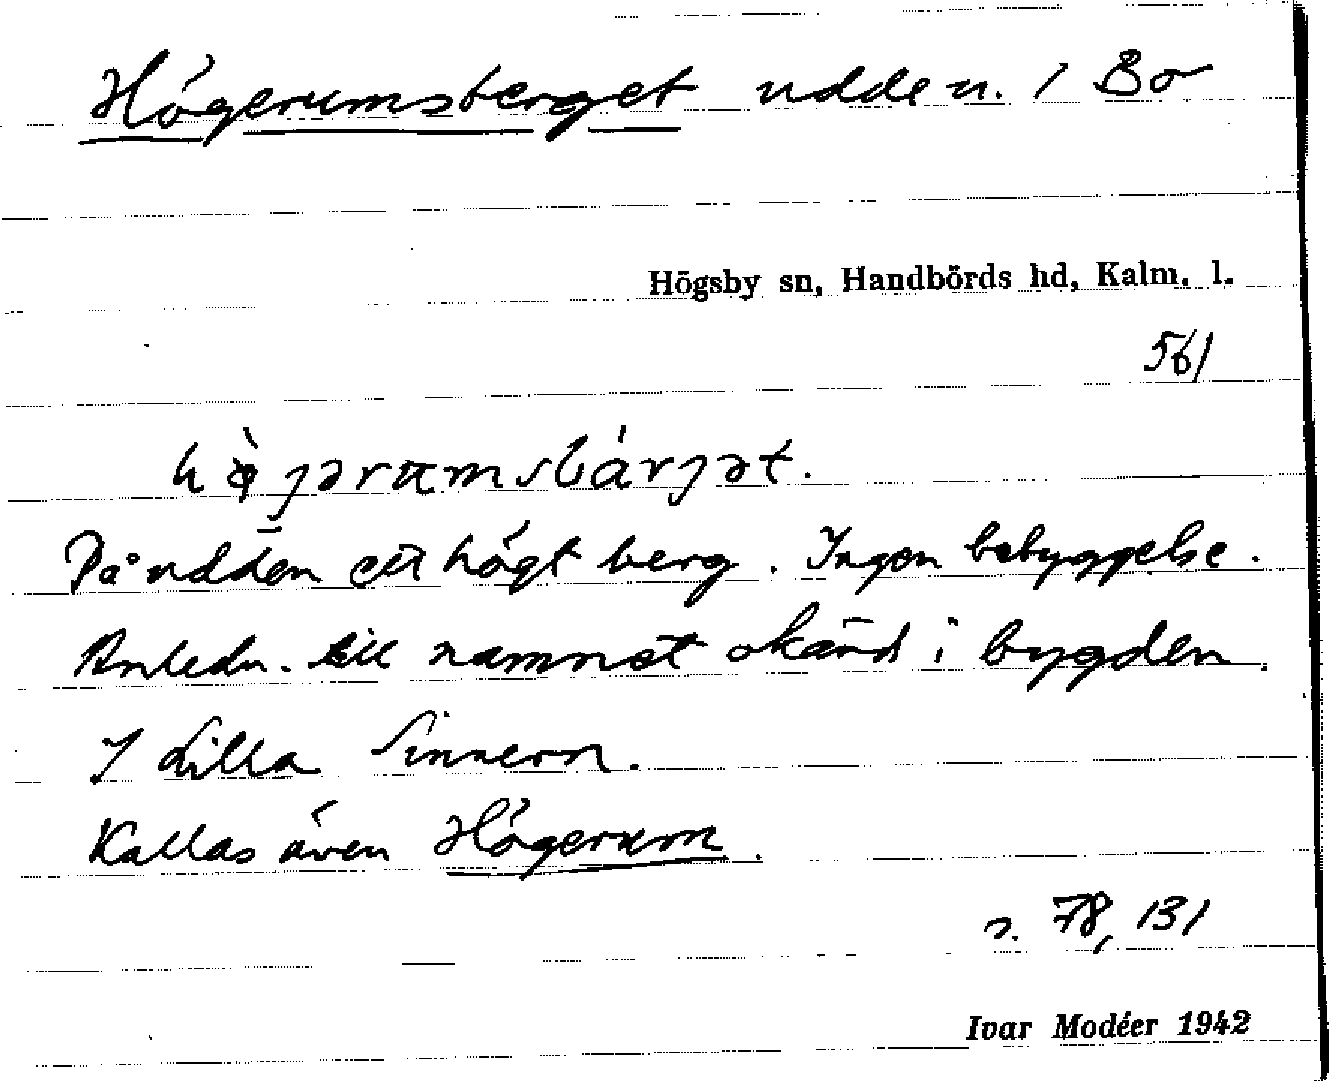 Högerumsberget udde n. i Bo
Högsby sn, Handbörds hd, Kalm. l.
561
hø̀jərumsbárjət.
På udden ett högt berg. Ingen bebyggelse.
Anledn. till namnet okänd i bygden.
I Lilla Sinnern.
Kallas även Högerum.
s. 78, 131
Ivar Modéer 1942